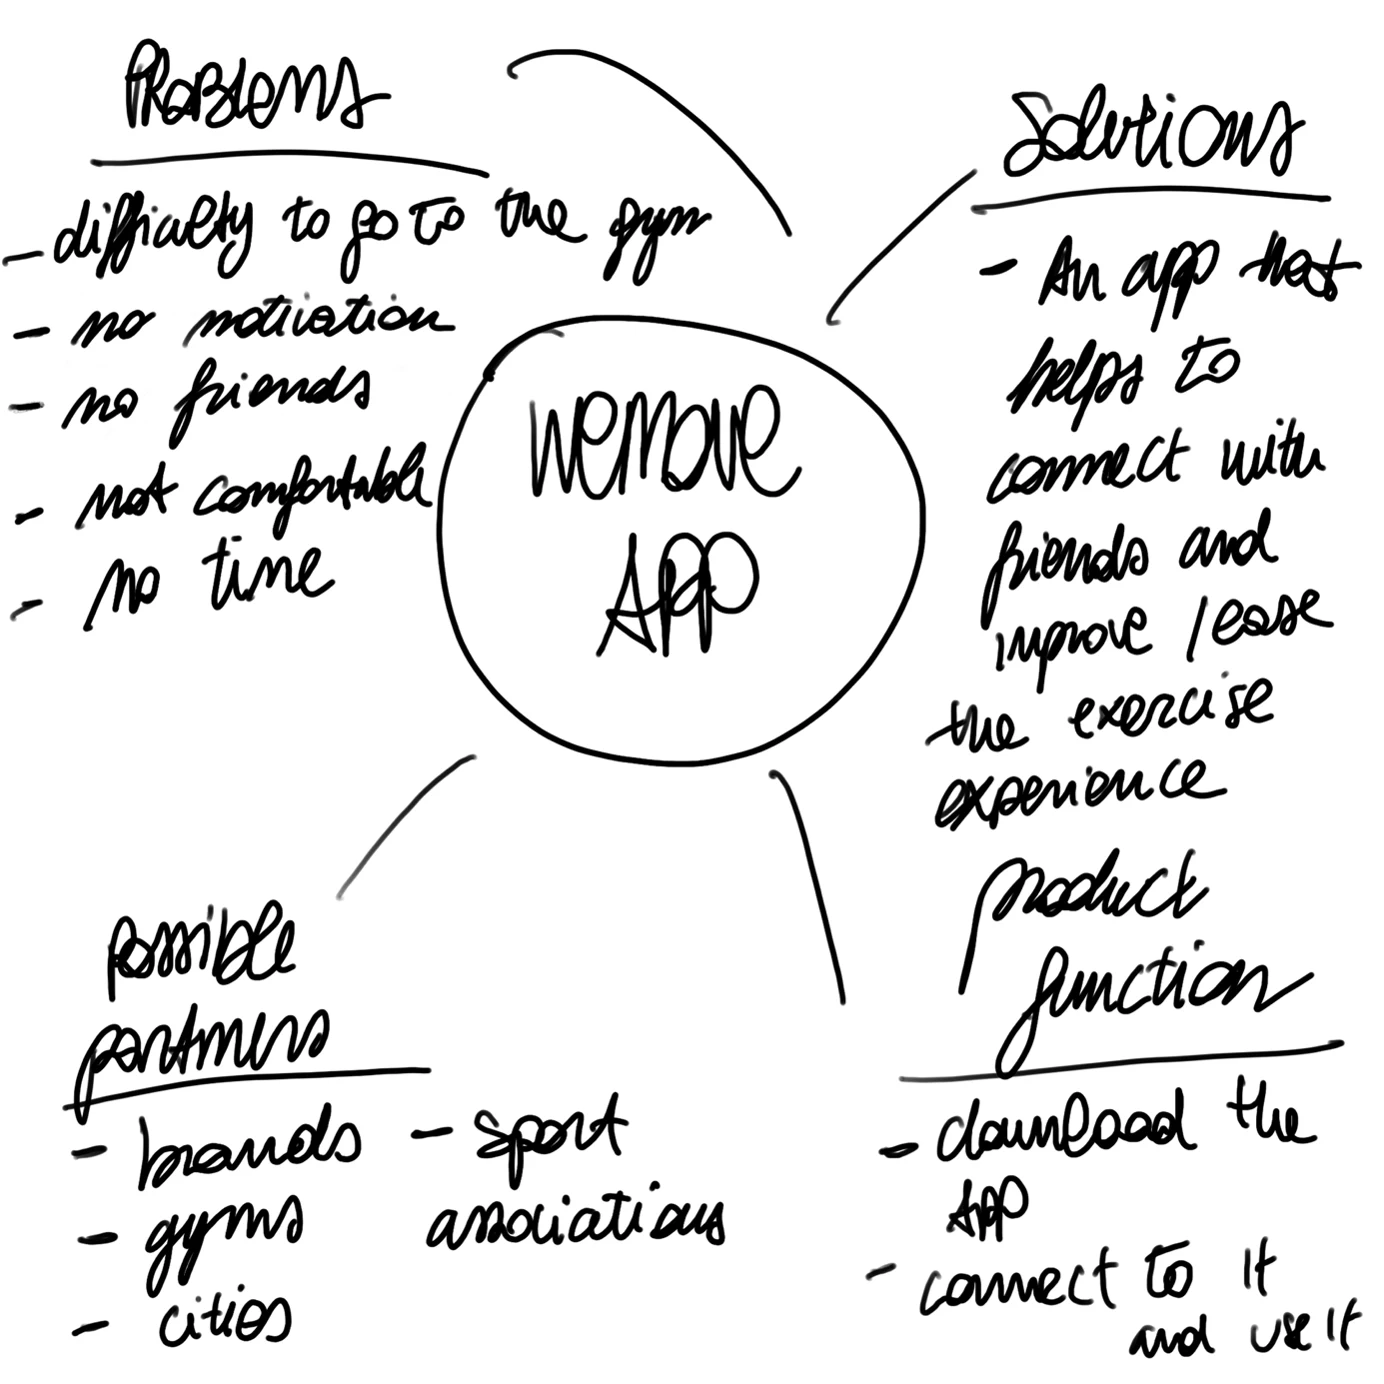 Problems
- difficulty to go to the gym
- no motivation
- no friends
- not comfortable
- no time
Wemove
App
Solutions
- An app that
helps to
connect with
friends and
improve / ease
the exercise
experience
possible
partners
- brands
- gyms
- cities
- sport
associations
product
function
- download the
App
- connect to it
and use it